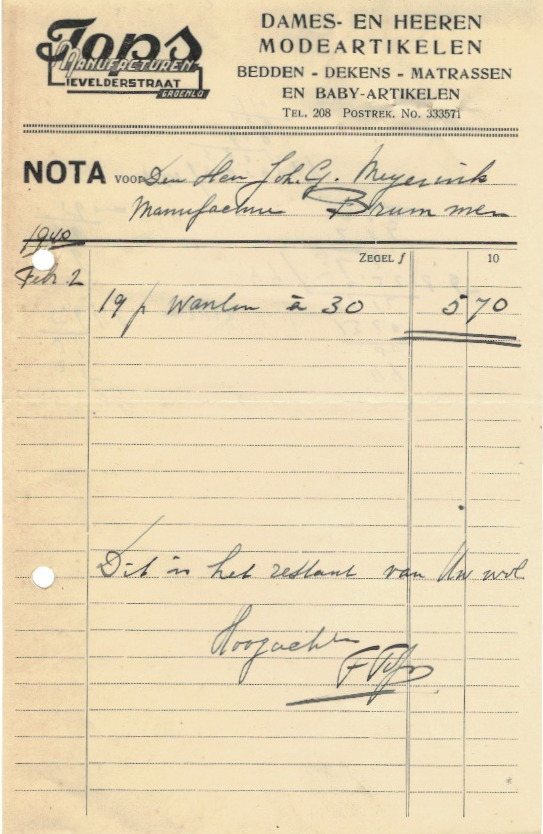 Tops
MANUFACTUREN
LIEVELDERSTRAAT
GROENLO
DAMES- EN HEEREN
MODEARTIKELEN
BEDDEN - DEKENS - MATRASSEN
EN BABY-ARTIKELEN
TEL. 208 POSTREK. No. 333571
NOTA VOOR Den Heer Joh. G. Meyerink
Manufacturen Brummen
1940
ZEGEL ƒ 10
Febr. 2
19 p wanten à 30 5 70
Dit is het restant van Uw wol
Hoogachten
F Tops